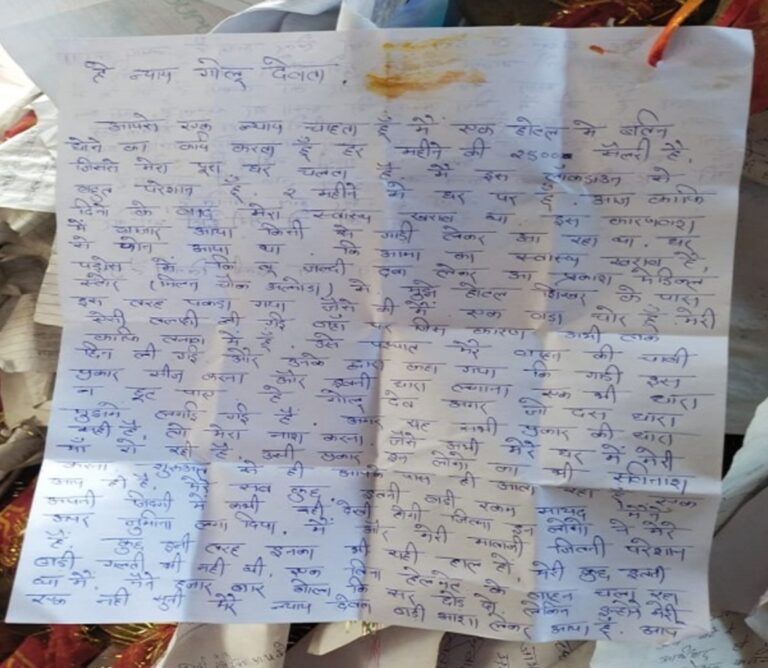 हे न्याय गोलू देवता.
आपसे एक न्याय चाहता हूँ मैं एक होटल में बर्तन
धोने का काम करता हूँ हर महीने की 2500 सैलरी है,
जिससे मेरा पूरा घर चलता है मैं इस लॉकडाउन से
बहुत परेशान हूँ. 2 महीने से घर पर हूँ आज काफि
दिनों के बाद मेरा स्वास्थ्य खराब था. इस कारणवश
मैं बाजार आया किसी की गाडी लेकर आ रहा था. घर
से फोन आया था. कि आमा का स्वास्थ्य खराब है,
कि तू जल्दी दवा लेकर आ प्रकाश मेडिकल
स्टोर (मिलन चौक अल्मोडा) से मुझे होटल शिखर के पास
इस तरह पकडा गया जैसे की मैं एक बडा चोर हूँ मेरी
ऐसी तलाशी ली गई वहा पर जिस कारण अभी तक
काफि तनाव में हूँ. उसके पश्चात मेरे वाहन की चाबी
छिन ली गई और उनके द्वारा कहा गया कि गाडी इस
प्रकार सीज करना और इतनी धारा लगाना एक भी धारा
न छूट पाए हे गोलू देव अगर जो दस धारा
मुझपे लगाई गई है. अगर यह सभी प्रकार की धारा
सही है. तो मेरा नाश करना. जैसे अभी मेरे घर में मेरी
माँ रो रही है उसी प्रकार इन लोगो का भी सर्वनाश
करना शुरूआत से ही आपके पास ही आता रहा हूँ एक
आप ही हैं मेरे सब कुछ. इतनी बडी रकम सायद मैंने
अपनी जिंदगी में कभी नही देखी होगी जितना इन लोगो ने मेरे
ऊपर जुर्माना लगा दिया. मैं और मेरी माताजी जितनी परेशान
हैं. कुछ इसी तरह इनका भी यही हाल हो. मेरी कुछ इतनी
बडी गलती भी नही थी. एक बिना हेलमेट के वाहन चला रहा
था मैं. मैंने हजार बार बोला कि सर छोड दो. लेकिन उन्होंने मेरी
एक नही सुनी मेरे न्याय देवता बडी आशा लेकर आया हूँ. आप